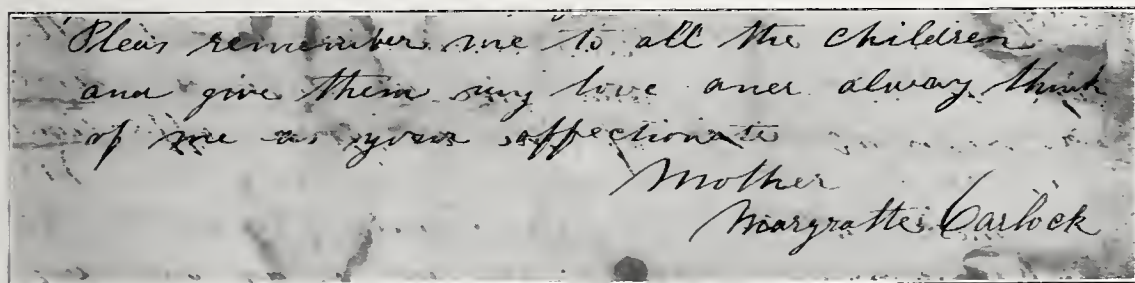 Pleas remember me to all the children
and give them my love and alway think
of me as your affectionate
Mother
Margratte Carlock